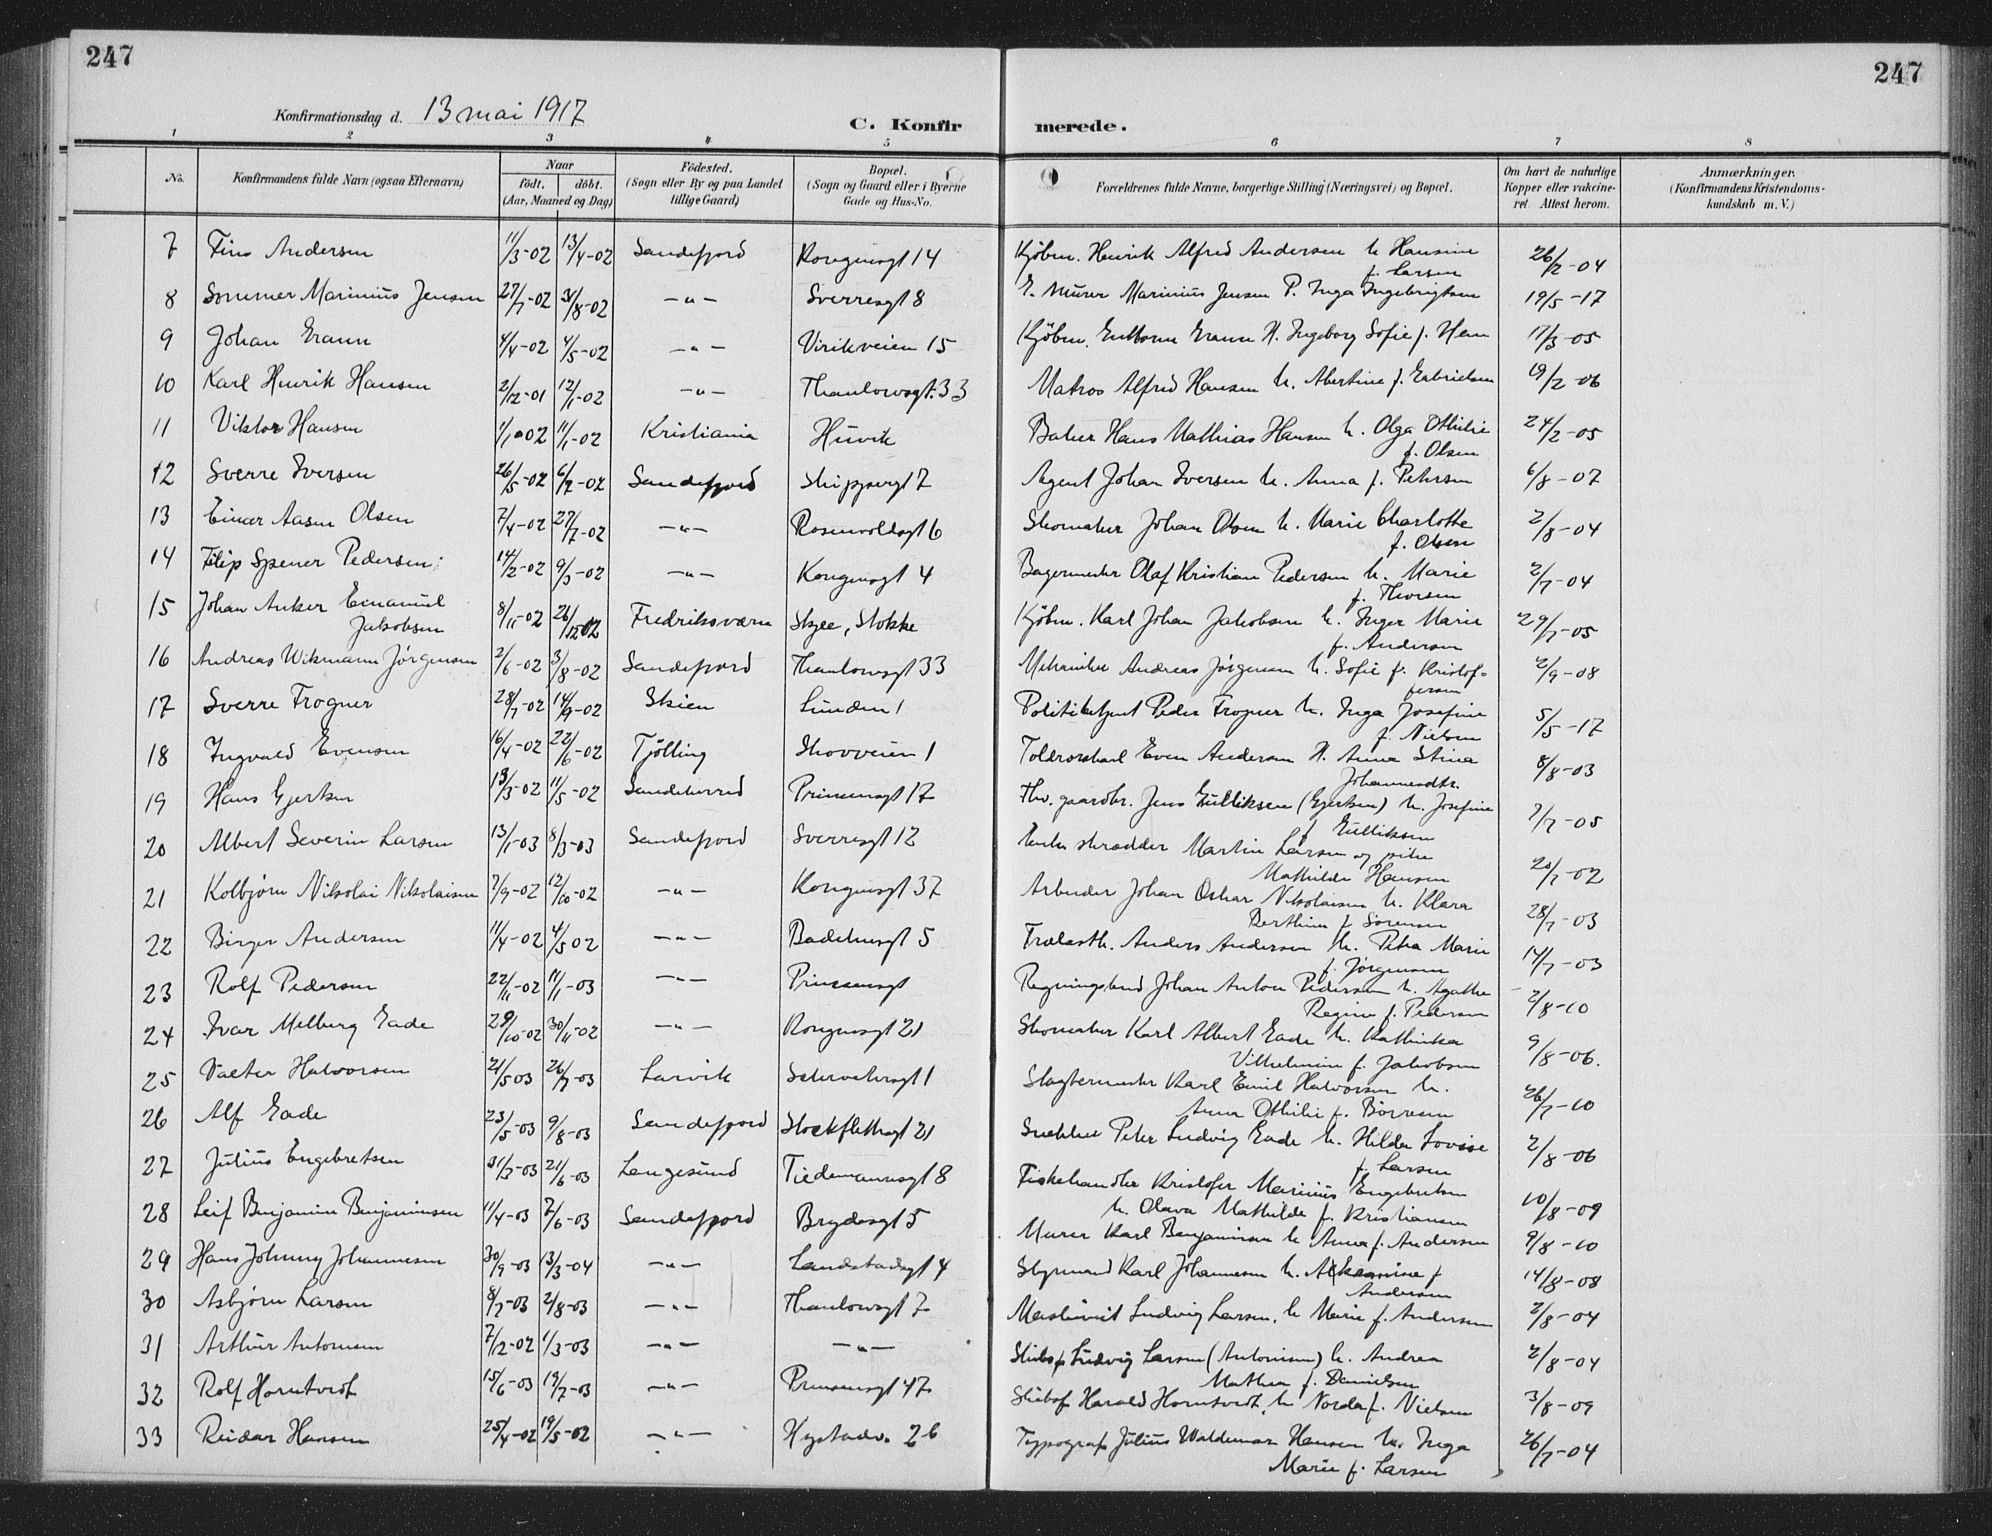 247
247
Konfirmationsdag d. 13 mai 1917
C. Konfir merede.
1 2 3 4 5 6 7 8
No. Konfirmandens fulde Navn (ogsaa Efternavn) Naar födt. döbt. (Aar, Maaned og Dag) Födested. (Sogn eller By og paa Landet tillige Gaard) Bopæl. (Sogn og Gaard eller i Byerne Gade og Hus-No. Forældrenes fulde Navne, borgerlige Stilling (Næringsvei) og Bopæl. Om havt de naturlige Kopper eller vakcineret. Attest herom. Anmærkninger. (Konfirmandens Kristendomskundskab m. V.)
7 Finn Andersen 11/3-02 13/4-02 Sandefjord Kongensgt 14 Kjöbm. Henrik Alfred Andersen h. Hansine f. Larsen 26/2-04
8 Sommer Marinius Jensen 27/7-02 31/8-02 -"- Sverresgt 8 Murer Marinius Jensen P. Inga Ingebrigtsen 19/5-17
9 Johan Grann 4/4-02 4/5-02 -"- Virikveien 15 Kjöbm. Grann H. Ingeborg Sofie f. Hem 17/3-05
10 Karl Henrik Hansen 2/12-01 12/1-02 -"- Thaulowsgt. 33 Matros Alfred Hansen h. Abertine f. Gabrielsen 19/2-06
11 Viktor Hansen 1/1-02 11/1-02 Kristiania Huvik Baker Hans Mathias Hansen h. Olga Othilie f. Olsen 24/2-05
12 Sverre Iversen 26/5-02 6/7-02 Sandefjord Skippergt 7 Agent Johan Iversen h. Anna f. Petersen 6/8-07
13 Einar Aasen Olsen 7/4-02 27/7-02 -"- Rosenvoldsgt 6 Skomaker Johan Olsen h. Marie Charlotte f. Olsen 2/8-04
14 Filip Spener Pedersen 14/2-02 9/3-02 -"- Kongensgt 4 Bagermester Olaf Kristian Pedersen h. Marie f. Thorsen 2/7-04
15 Johan Anker Emanuel Jakobsen 8/11-02 26/12 02 Fredriksværn Skjee, Stokke Kjöbm. Karl Johan Jakobsen h. Inger Marie f. Andersen 29/7-05
16 Andreas Wikmann Jørgensen 2/6-02 3/8-02 Sandefjord Thaulowsgt 33 Mekaniker Andreas Jörgensen h. Sofie f. Kristoffersen 2/9-08
17 Sverre Frogner 28/7-02 14/9-02 Skien Lunden 1 Politibetjent Peder Frogner h. Inga Josefine f. Nielsen 5/5-17
18 Ingvald Evensen 16/4-02 22/6-02 Tjölling Skovveien 1 Toldrorskarl Even Andersen H. Anna Stina Johannesdtr. 8/8-03
19 Hans Gjertsen 13/3-02 11/5-02 Sandeherred Prinsensgt 17 Fhv. gaardbr. Jens Gulliksen (Gjertsen) h. Josefine f Gulliksen 7/7-05
20 Albert Severin Larsen 13/1-03 8/3-03 Sandefjord Sverresgt 12 skrædder Martin Larsen og pike Mathilde Hansen 20/7-02
21 Kolbjørn Nikolai Nikolaisen 7/9-02 12/10-02 -"- Kongensgt 37 Arbeider Johan Oskar Nikolaisen h. Klara Berthine f Sörensen 28/7-03
22 Birger Andersen 11/4-02 4/5 02 -"- Badehusgt 5 Trælasth. Anders Andersen h. Petra Marie f. Jørgensen 14/7-03
23 Rolf Pedersen 22/11-02 11/1-03 -"- Prinsensgt Regningsbud Johan Anton Pedersen h. Agathe Regine f. Pedersen 2/8-10
24 Ivar Melberg Gade 29/10-02 30/11-02 -"- Kongensgt 21 Skomaker Karl Albert Gade h. Kathinka Vilhelmine f. Jakobsen 9/8-06.
25 Valter Halvorsen 21/5 03 26/7-03 Larvik gt 1 Slagtermester Karl Emil Halvorsen h. Anna Othilie f. Börresen 26/7-10
26 Alf Gade 23/5-03 9/8-03 Sandefjord Stockflethsgt 21 Snekker Peter Ludvig Gade h. Hilda Lovise f. Larsen 2/8-06
27 Julius Engebretsen 31/3-03 21/6-03 Langesund Tiedemannsgt 8 Fiskehandler Kristofer Marinius Engebretsen h. Olava Mathilde f. Kristiansen 10/8-09
28 Leif Benjamin Benjaminsen 11/4-03 7/6-03 Sandefjord Brydesgt 5 Murer Karl Benjaminsen h Anna f. Andersen 9/8-10
29 Hans Johnny Johannesen 30/9-03 13/3-04 -"- Landstadsgt 4 Styrmand Karl Johannesen h. f Andersen 14/8-08
30 Asbjørn Larsen 8/7-03 2/8-03 -"- Thaulowsgt 7 Maskinist Ludvig Larsen, h Marie f. Andersen 2/8-04
31 Arthur Antonsen 7/12-02 1/3-03 -"- -"- Ludvig Larsen (Antonisen) h. Andrea Mathea f. Danielsen 2/8-04
32 Rolf Horntvedt 15/6-03 19/7-03 -"- Prinsensgt 47 Harald Horntvedt, h Norda f. Nielsen 3/8-09
33 Reidar Hansen 25/4-02 19/5-02 -"- Hystadv. 26 Typograf Julius Waldemar Hansen h. Inga Marie f. Larsen 26/7-04